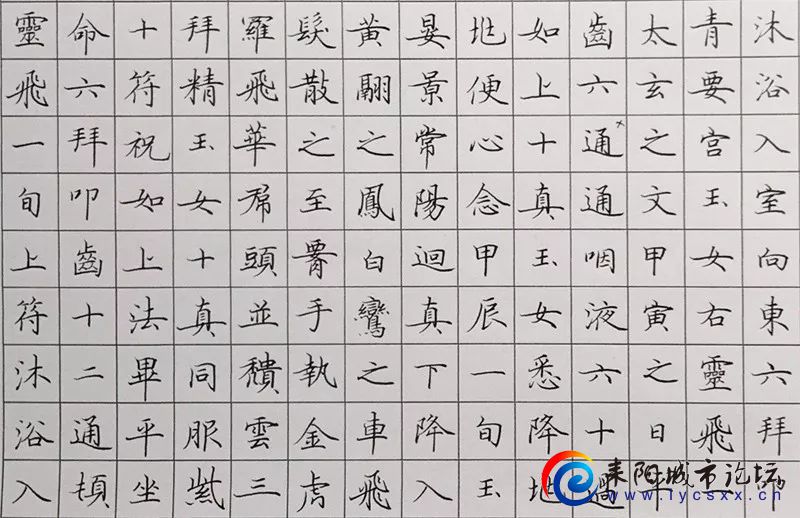 沐浴入室向東六拜叩
青要宫玉女右靈飛
太玄之文甲寅之日
齒六通通咽液六十過
如上十真玉女悉降地
地便心念甲辰一旬玉
晏景常陽迴真下降入
黃翩之鳳白鸞之車飛
髮散之至手執金虎
羅飛華帬頭並穨雲三
拜精玉女十真同服紫
十符祝如上法畢平坐
命六拜叩齒十二通頓
靈飛一旬上符沐浴入
耒阳城市论坛
www.lycsxx.cn